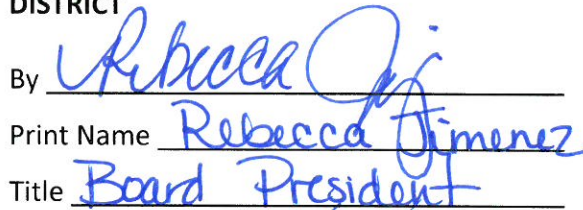 DISTRICT
By Rebecca Ji
Print Name Rebecca Jimenez
Title Board President